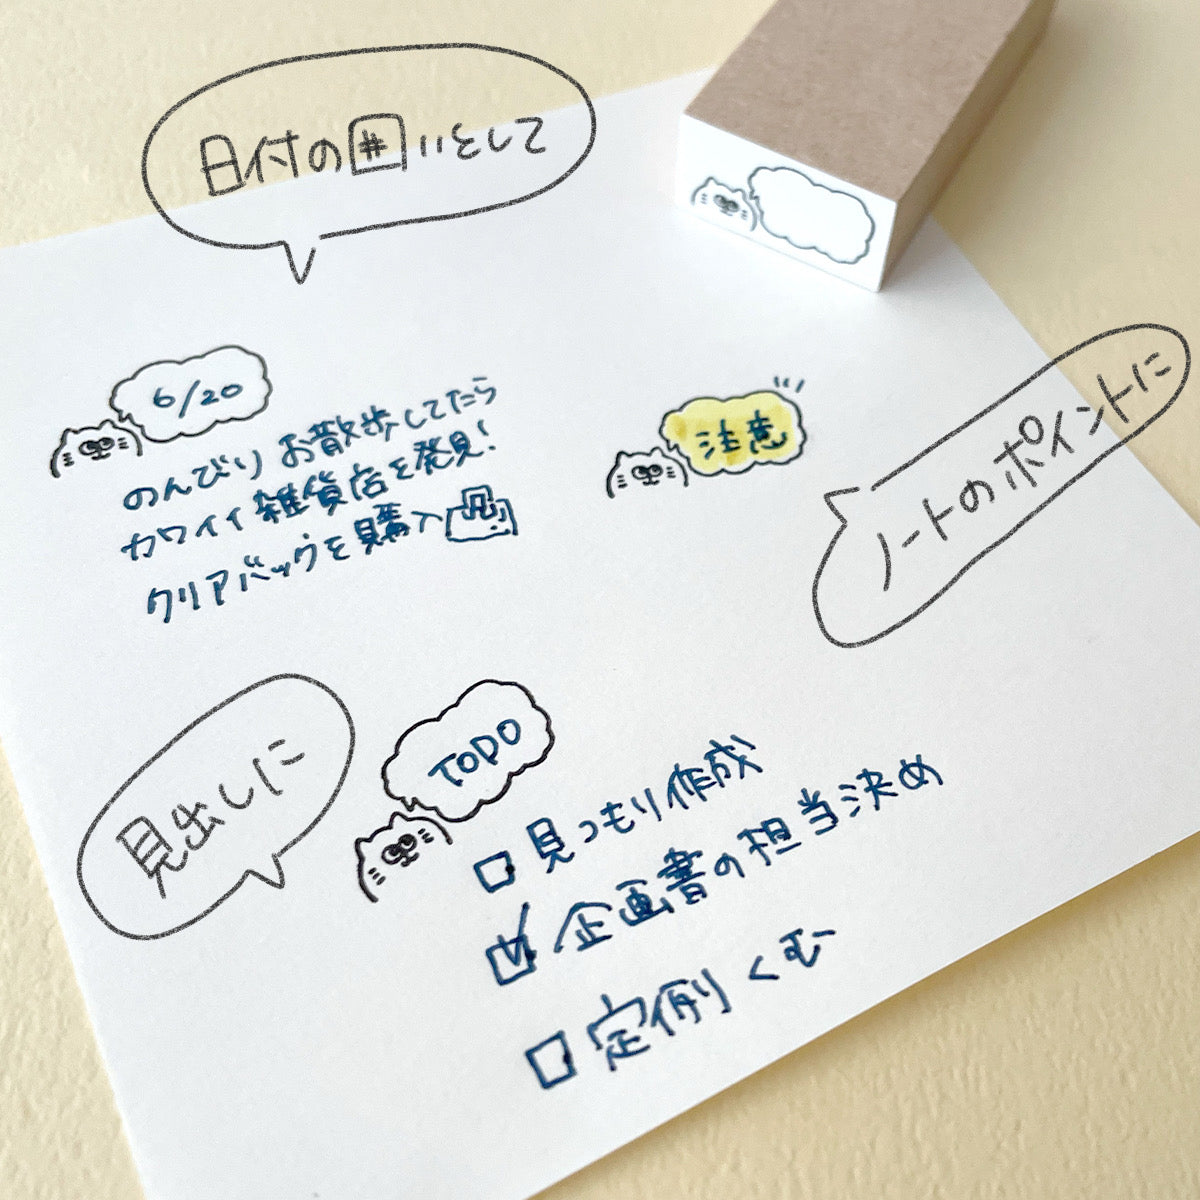 日付の囲いとして
6/20
のんびりお散歩してたら
カワイイ雑貨店を発見!
クリアバッグを購入
注意
ノートのポイントに
見出しに
TODO
見つもり作成
企画書の担当決め
定例くむ